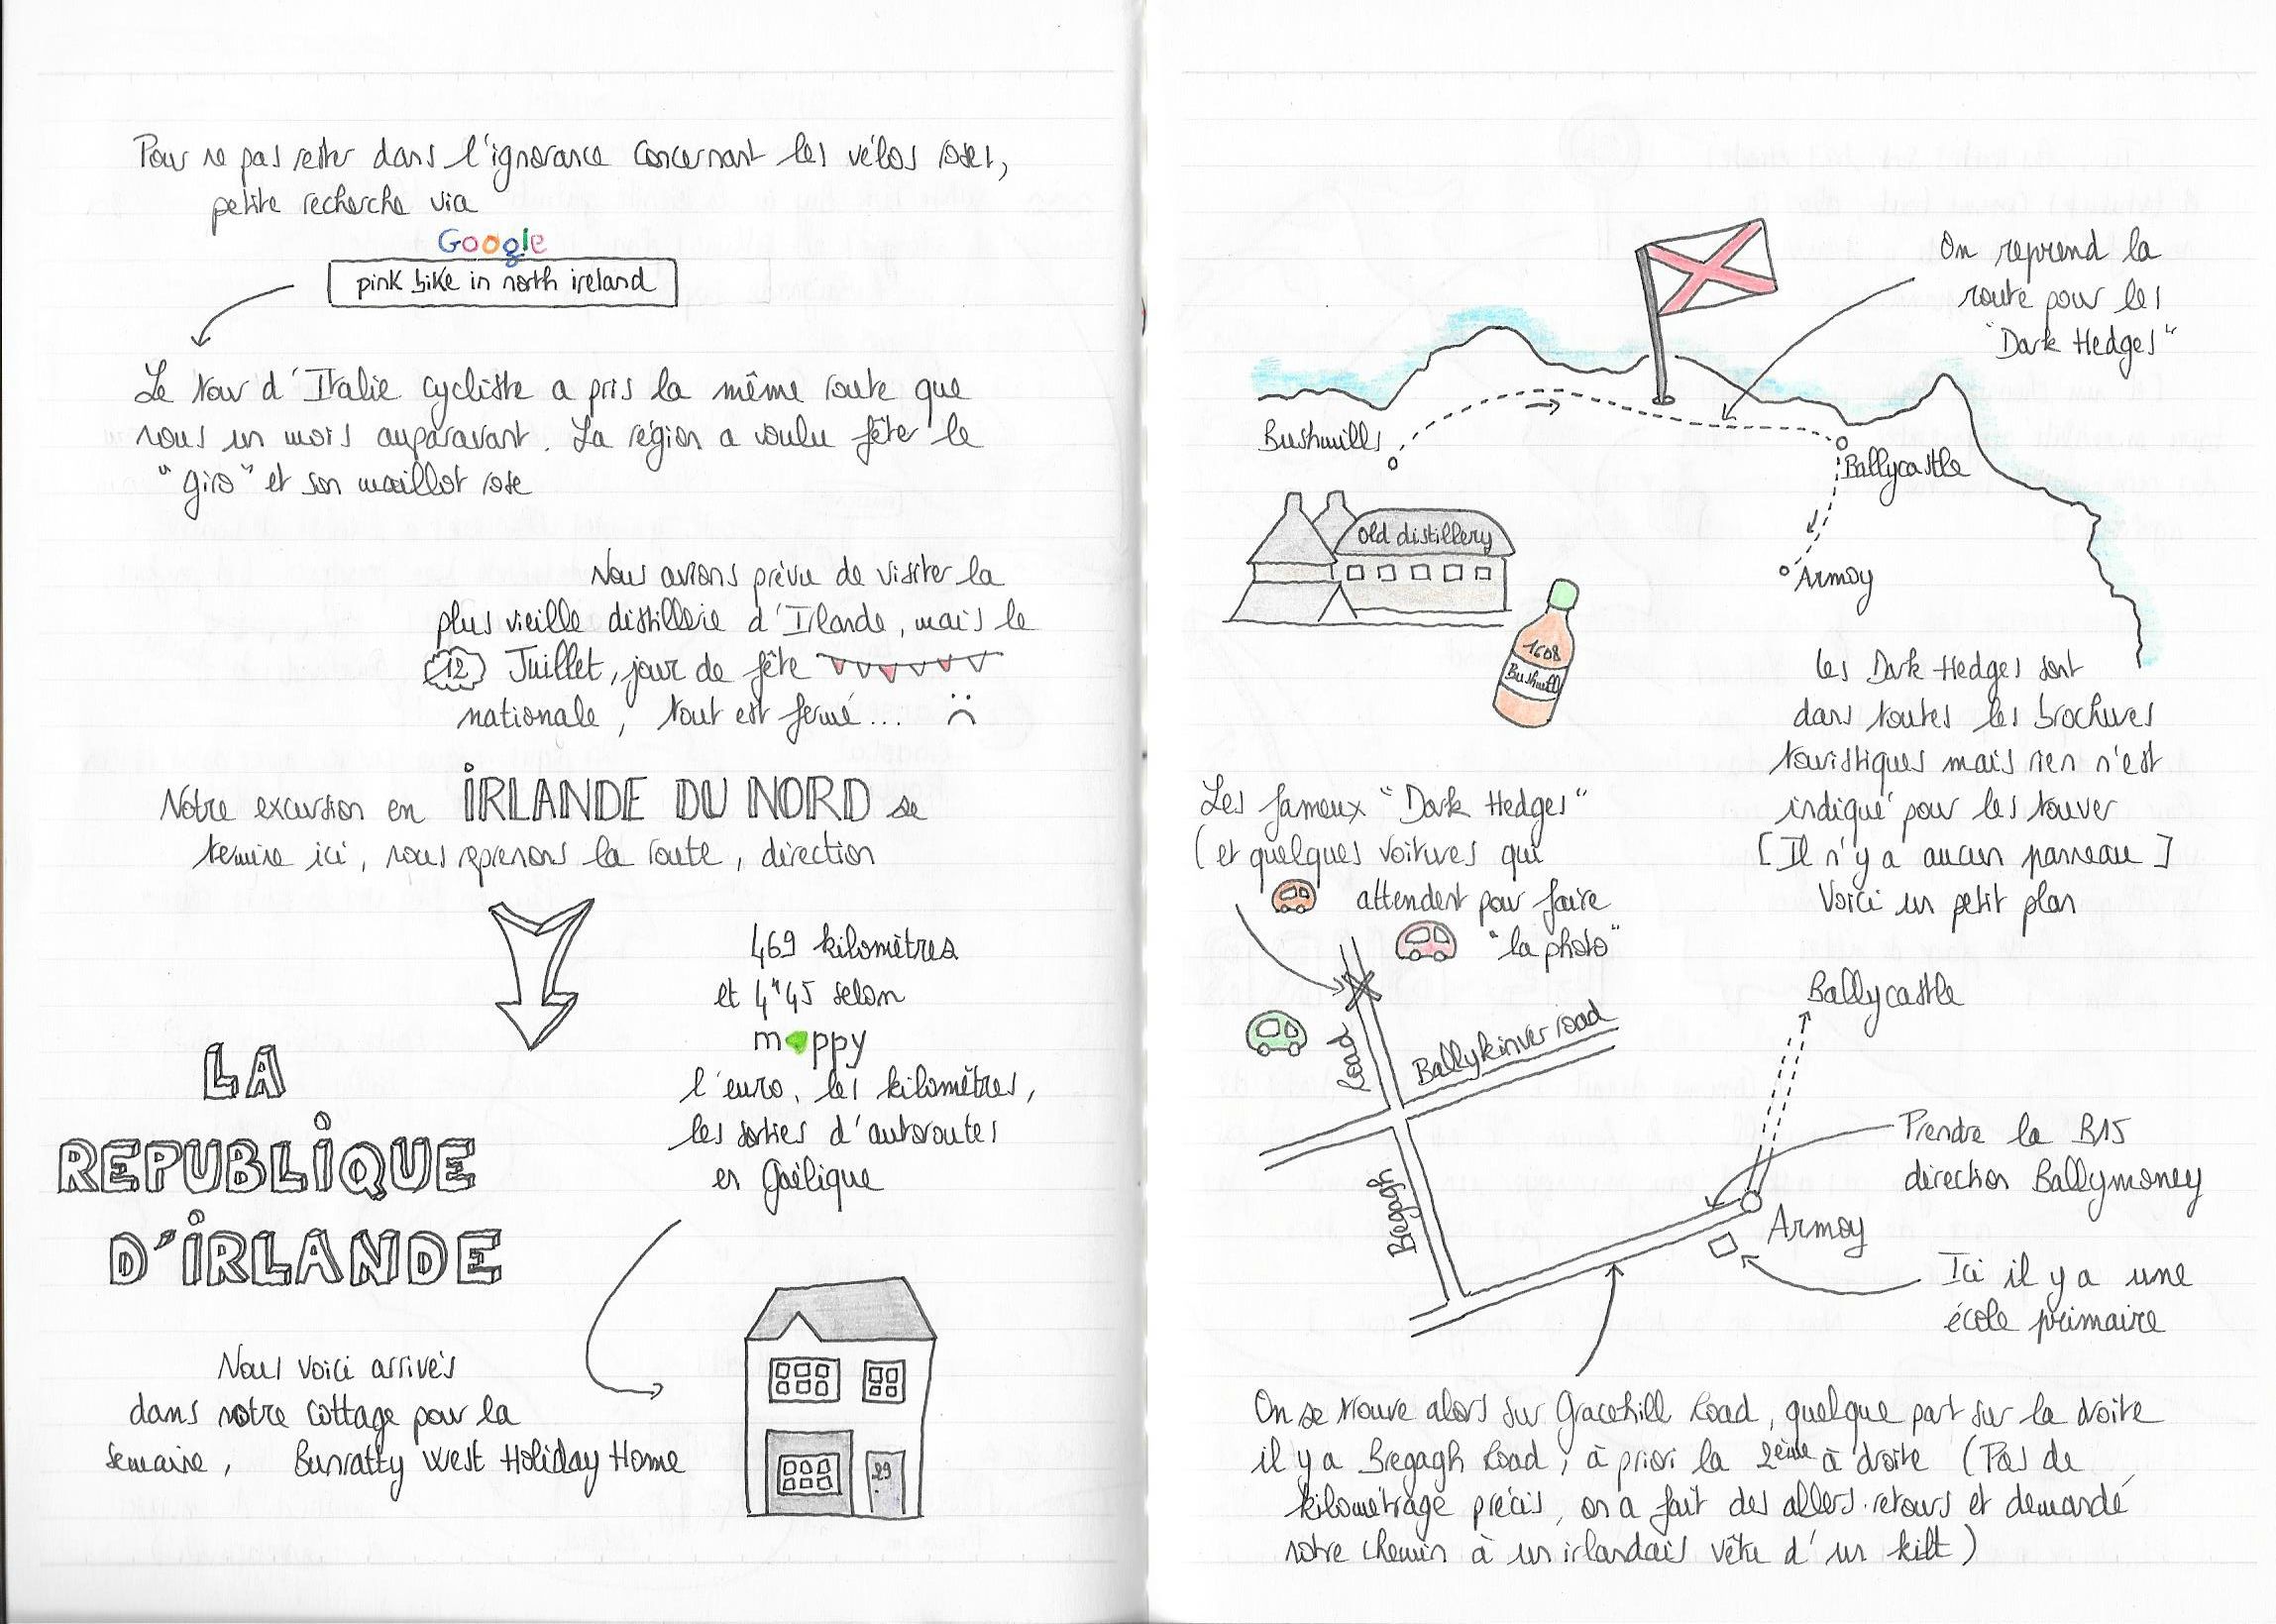 Pour ne pas rester dans l'ignorance concernant les vélos roses,
petite recherche via
Google
pink bike in north ireland
Le tour d'Italie cycliste a pris la même route que
nous un mois auparavant. La région a voulu fêter le
"giro" et son maillot rose
Nous avions prévu de visiter la
plus vieille distillerie d'Irlande, mais le
12 Juillet, jour de fête
nationale, tout est fermé...
Notre excursion en IRLANDE DU NORD se
termine ici, nous reprenons la route, direction
469 kilomètres
et 4h45 selon
mappy
l'euro, les kilomètres,
les sorties d'autoroutes
en Gaélique
LA
REPUBLIQUE
D'IRLANDE
Nous voici arrivés
dans notre cottage pour la
semaine, Bunratty West Holiday Home
29
On reprend la
route pour les
"Dark Hedges"
Bushmills
Ballycastle
Armoy
Old distillery
1608
Bushmill
Les Dark Hedges sont
dans toutes les brochures
touristiques mais rien n'est
indiqué pour les touver
[Il n'y a aucun panneau]
Voici un petit plan
Les fameux "Dark Hedges"
(et quelques voitures qui
attendent pour faire
"la photo"
Ballycastle
Road
Ballykinver road
Bregagh
Prendre la B15
direction Ballymoney
Armoy
Ici il y a une
école primaire
On se trouve alors sur Gracehill Road, quelque part sur la droite
il y a Bregagh Road, à priori la 2ème à droite (Pas de
kilométrage précis, on a fait des allers-retours et demandé
notre chemin à un irlandais vêtu d'un kilt)